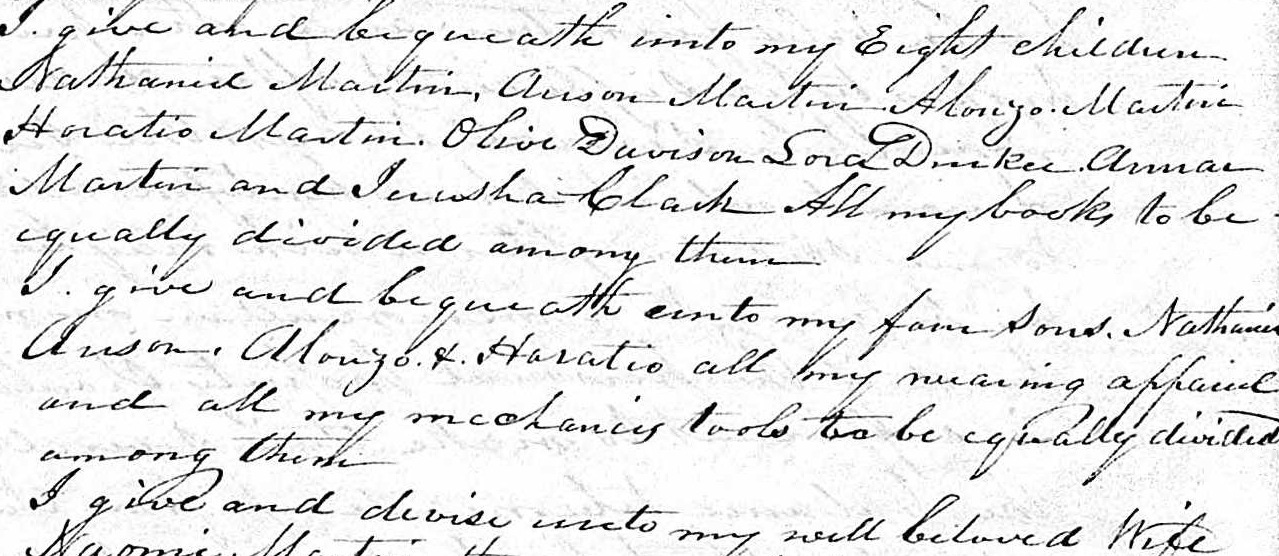 I. give and bequeath unto my Eight children
Nathaniel Martin, Anson Martin Alonzo. Martin
Horatio Martin. Olive Davison Lora Durkee. Anna
Martin and Jerusha Clark All my books to be
equally divided among them
I. give and bequeath unto my four sons. Nathaniel
Anson. Alonzo. &. Horatio all my wearing apparel
and all my mechanics tools to be equally divided
among them
I give and devise unto my well beloved Wife
Naomi Martin